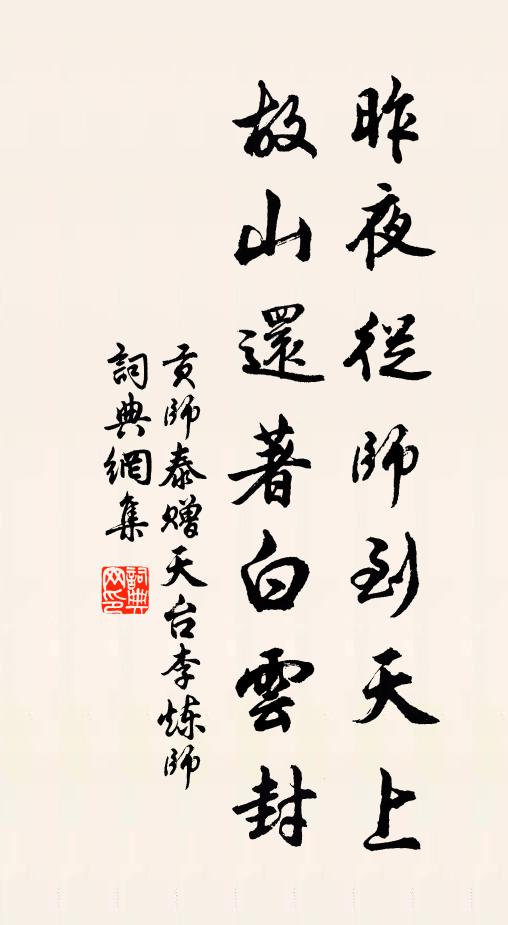 昨夜從師到天上
故山還著白雲封
贡師泰赠天台李炼師
詞典網集
詞典網印